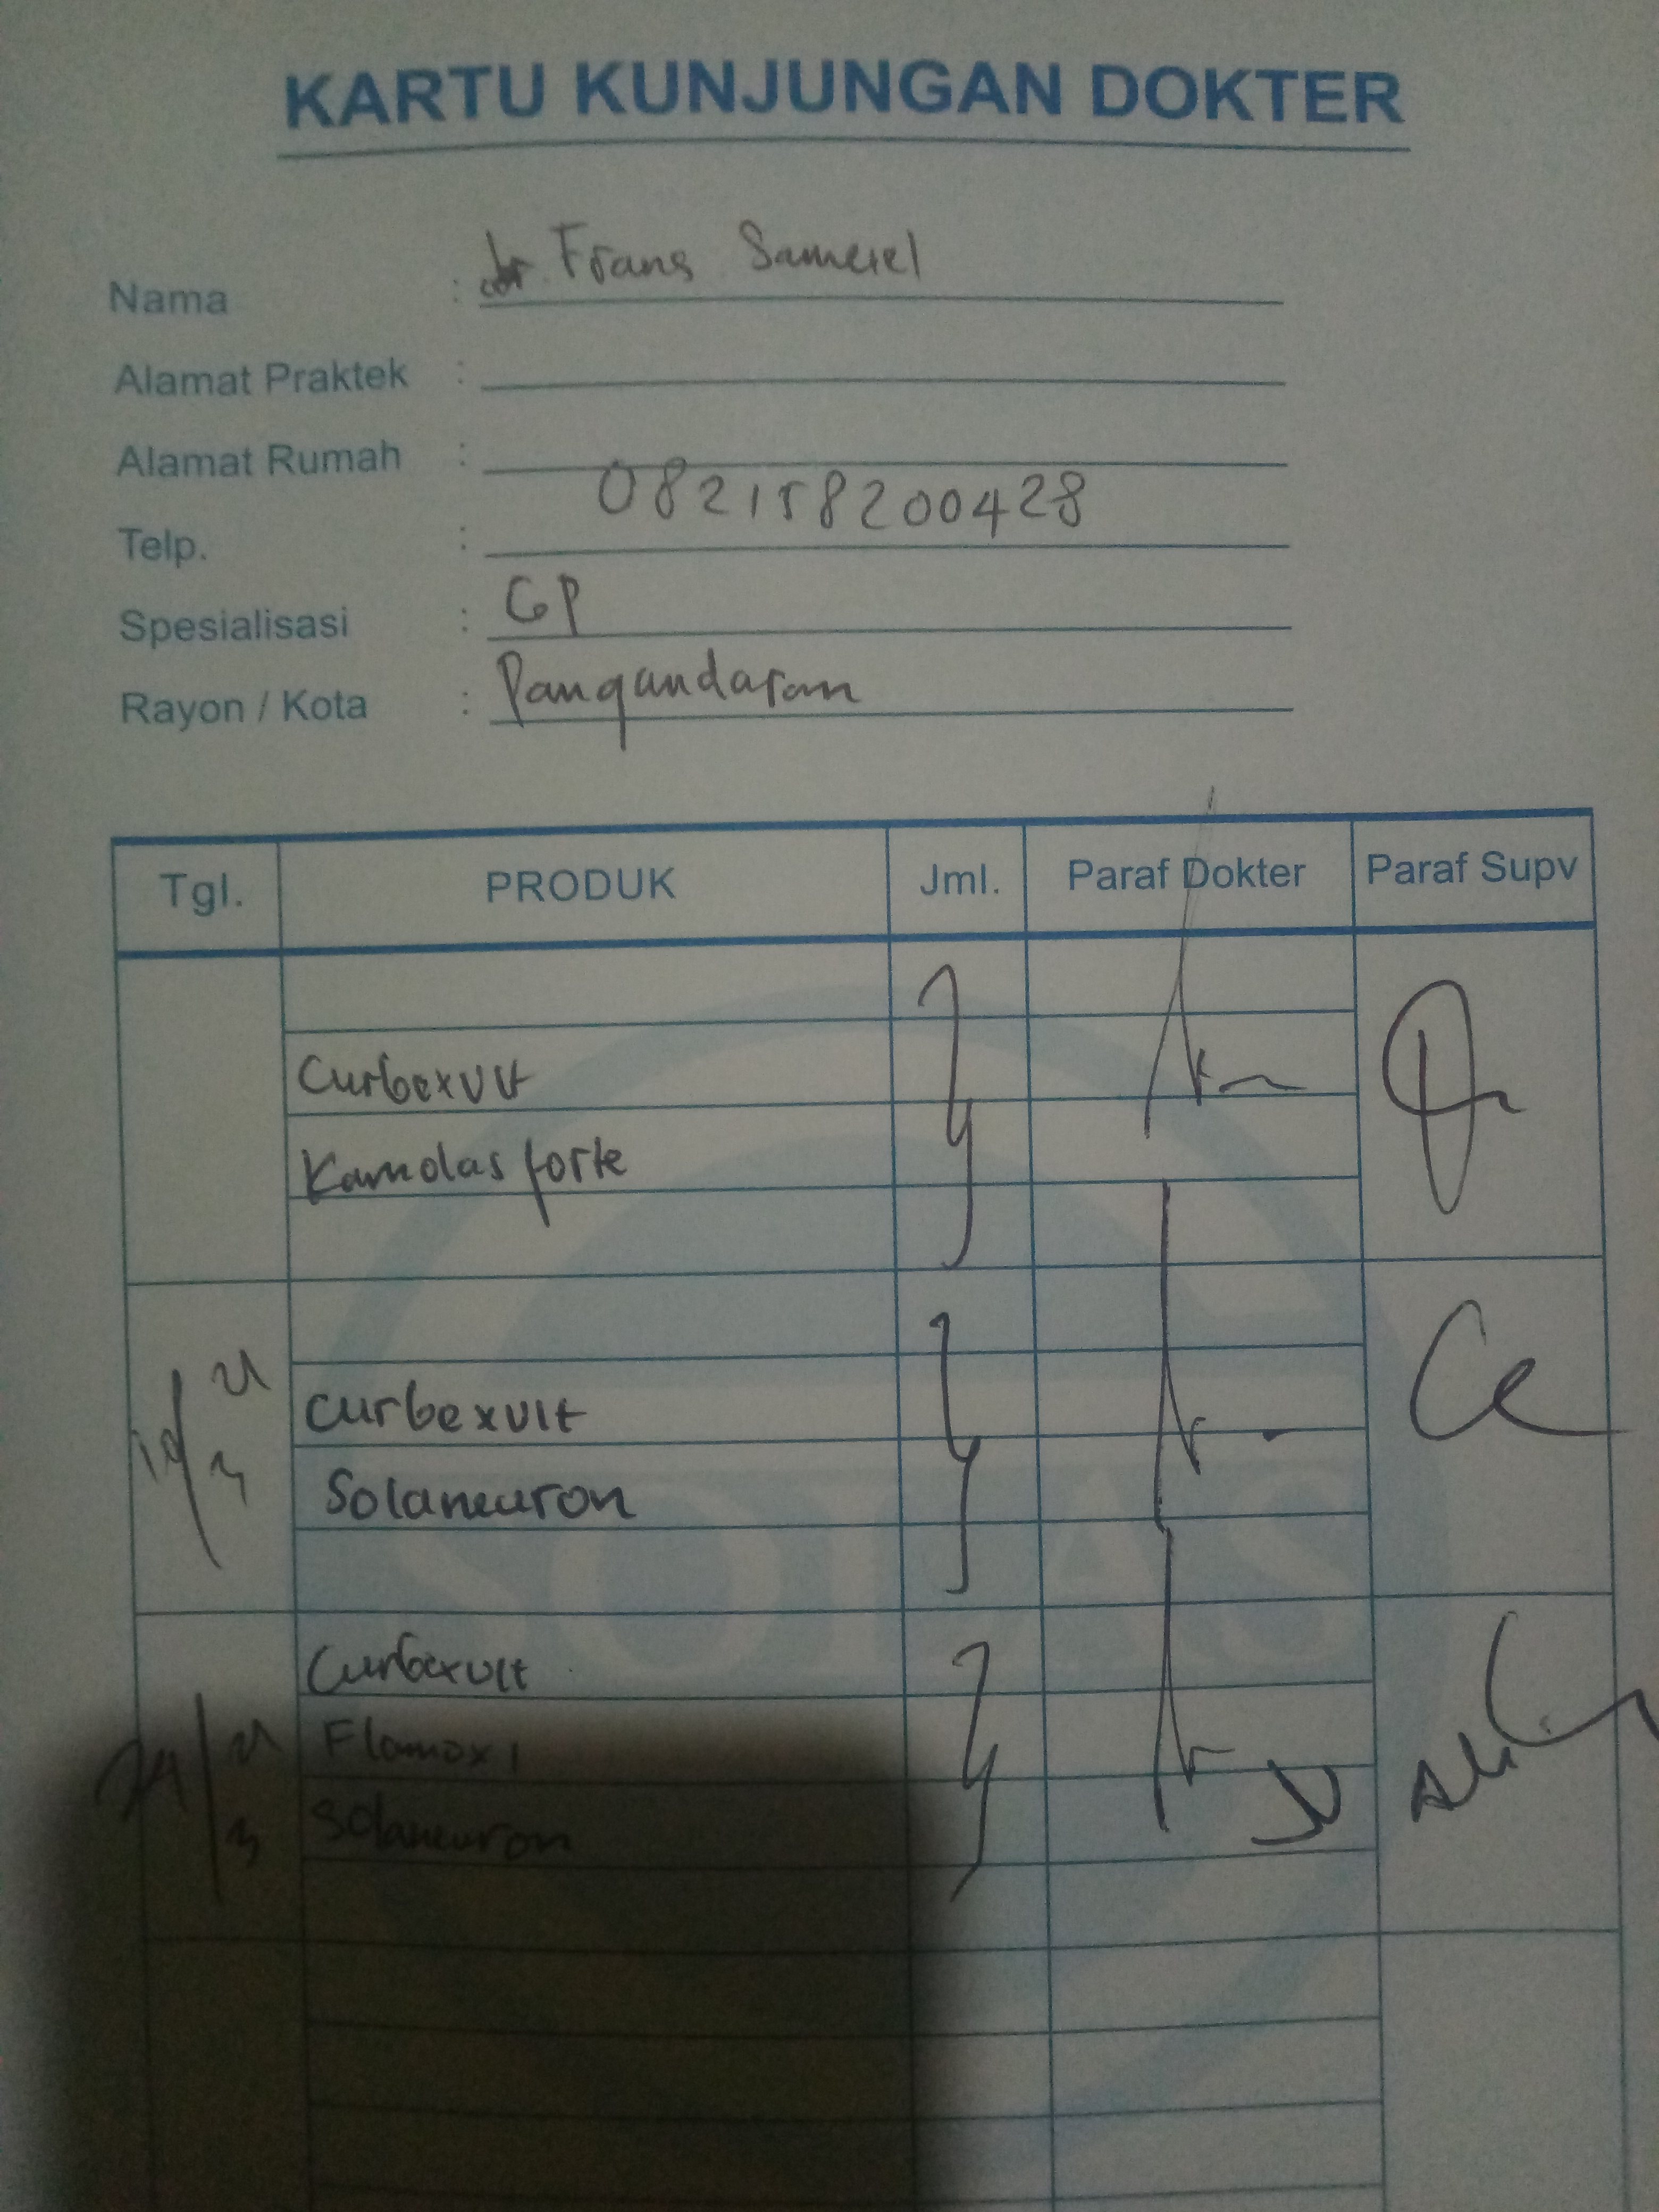 KARTU KUNJUNGAN DOKTER
Nama : dr. Frans Samuel
Alamat Praktek :
Alamat Rumah :
Telp. : 082158200428
Spesialisasi : GP
Rayon / Kota : Pangandaran
Tgl. PRODUK Jml. Paraf Dokter Paraf Supv
Curbexvit
Kamolas forte
Curbexvit
Solaneuron
Curbexvit
Flamoxi
Solaneuron
SOLAS